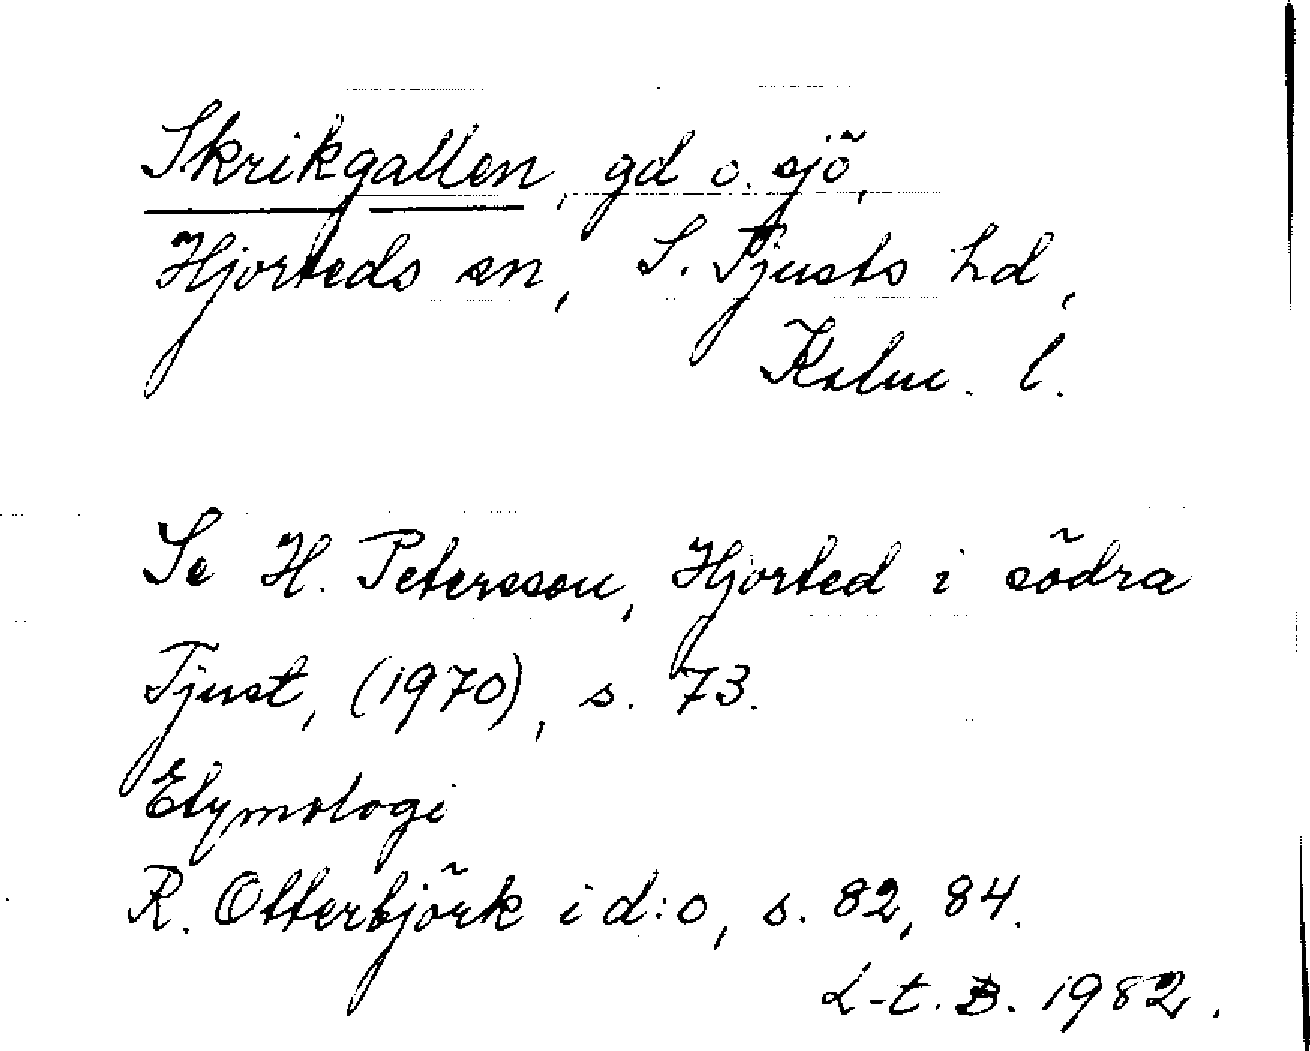 Skrikgallen, gd o. sjö,
Hjorteds sn, S. Tjusts hd,
Kalm. l.
Se H. Petersson, Hjorted i södra
Tjust, (1970), s. 73.
Etymologi
R. Otterbjörk i d:o, s. 82, 84.
L-t. B. 1982.